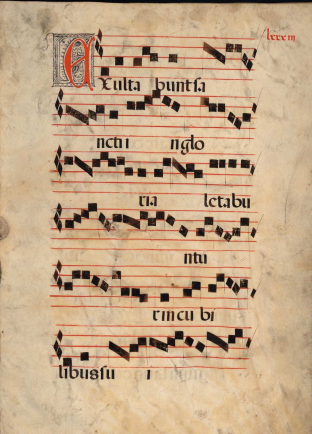 lxxxiii
Exulta bunt sa
ncti i nglo
ria letabu
ntu
r in cu bi
libus su i